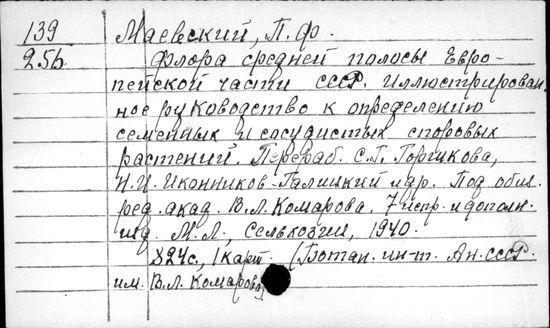 139 Маевский, П.ф.
256. Флора средней полосы Евро-
пейской части СССР. Иллюстрирован-
ное руководство к определению
семенных и сосудистых споровых
растений. Перераб. С.Г. Горшкова,
Н.И. Иконников-Галицкий и др. Под общ.
ред. акад. В.Л. Комарова. 7 испр. и дополн.
изд. М.Л., Сельхозгиз, 1940.
824с., 1 карт. (Ботан. ин-т. Ан. СССР
им. В.Л. Комарова)